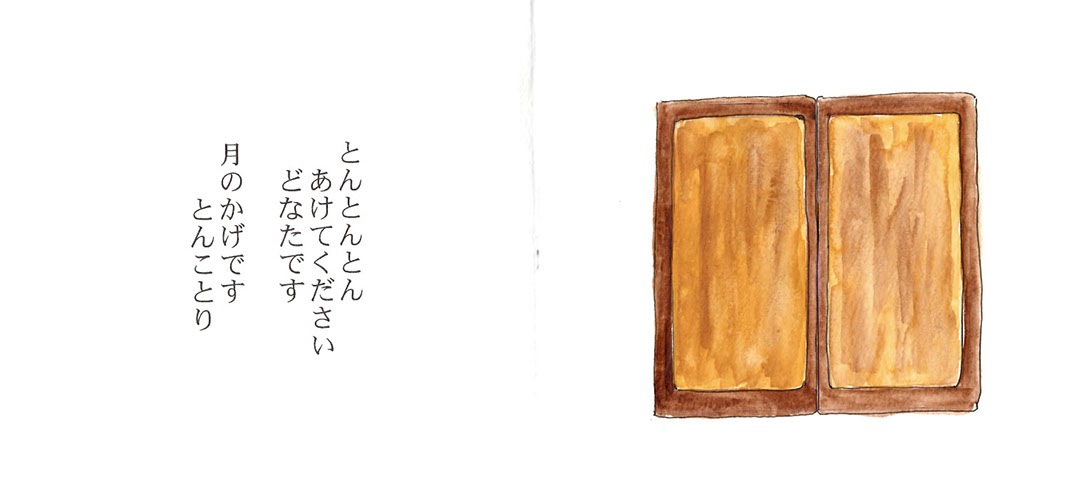 とんとんとんとん
あけてください
どなたです
月のかげです
とんことり